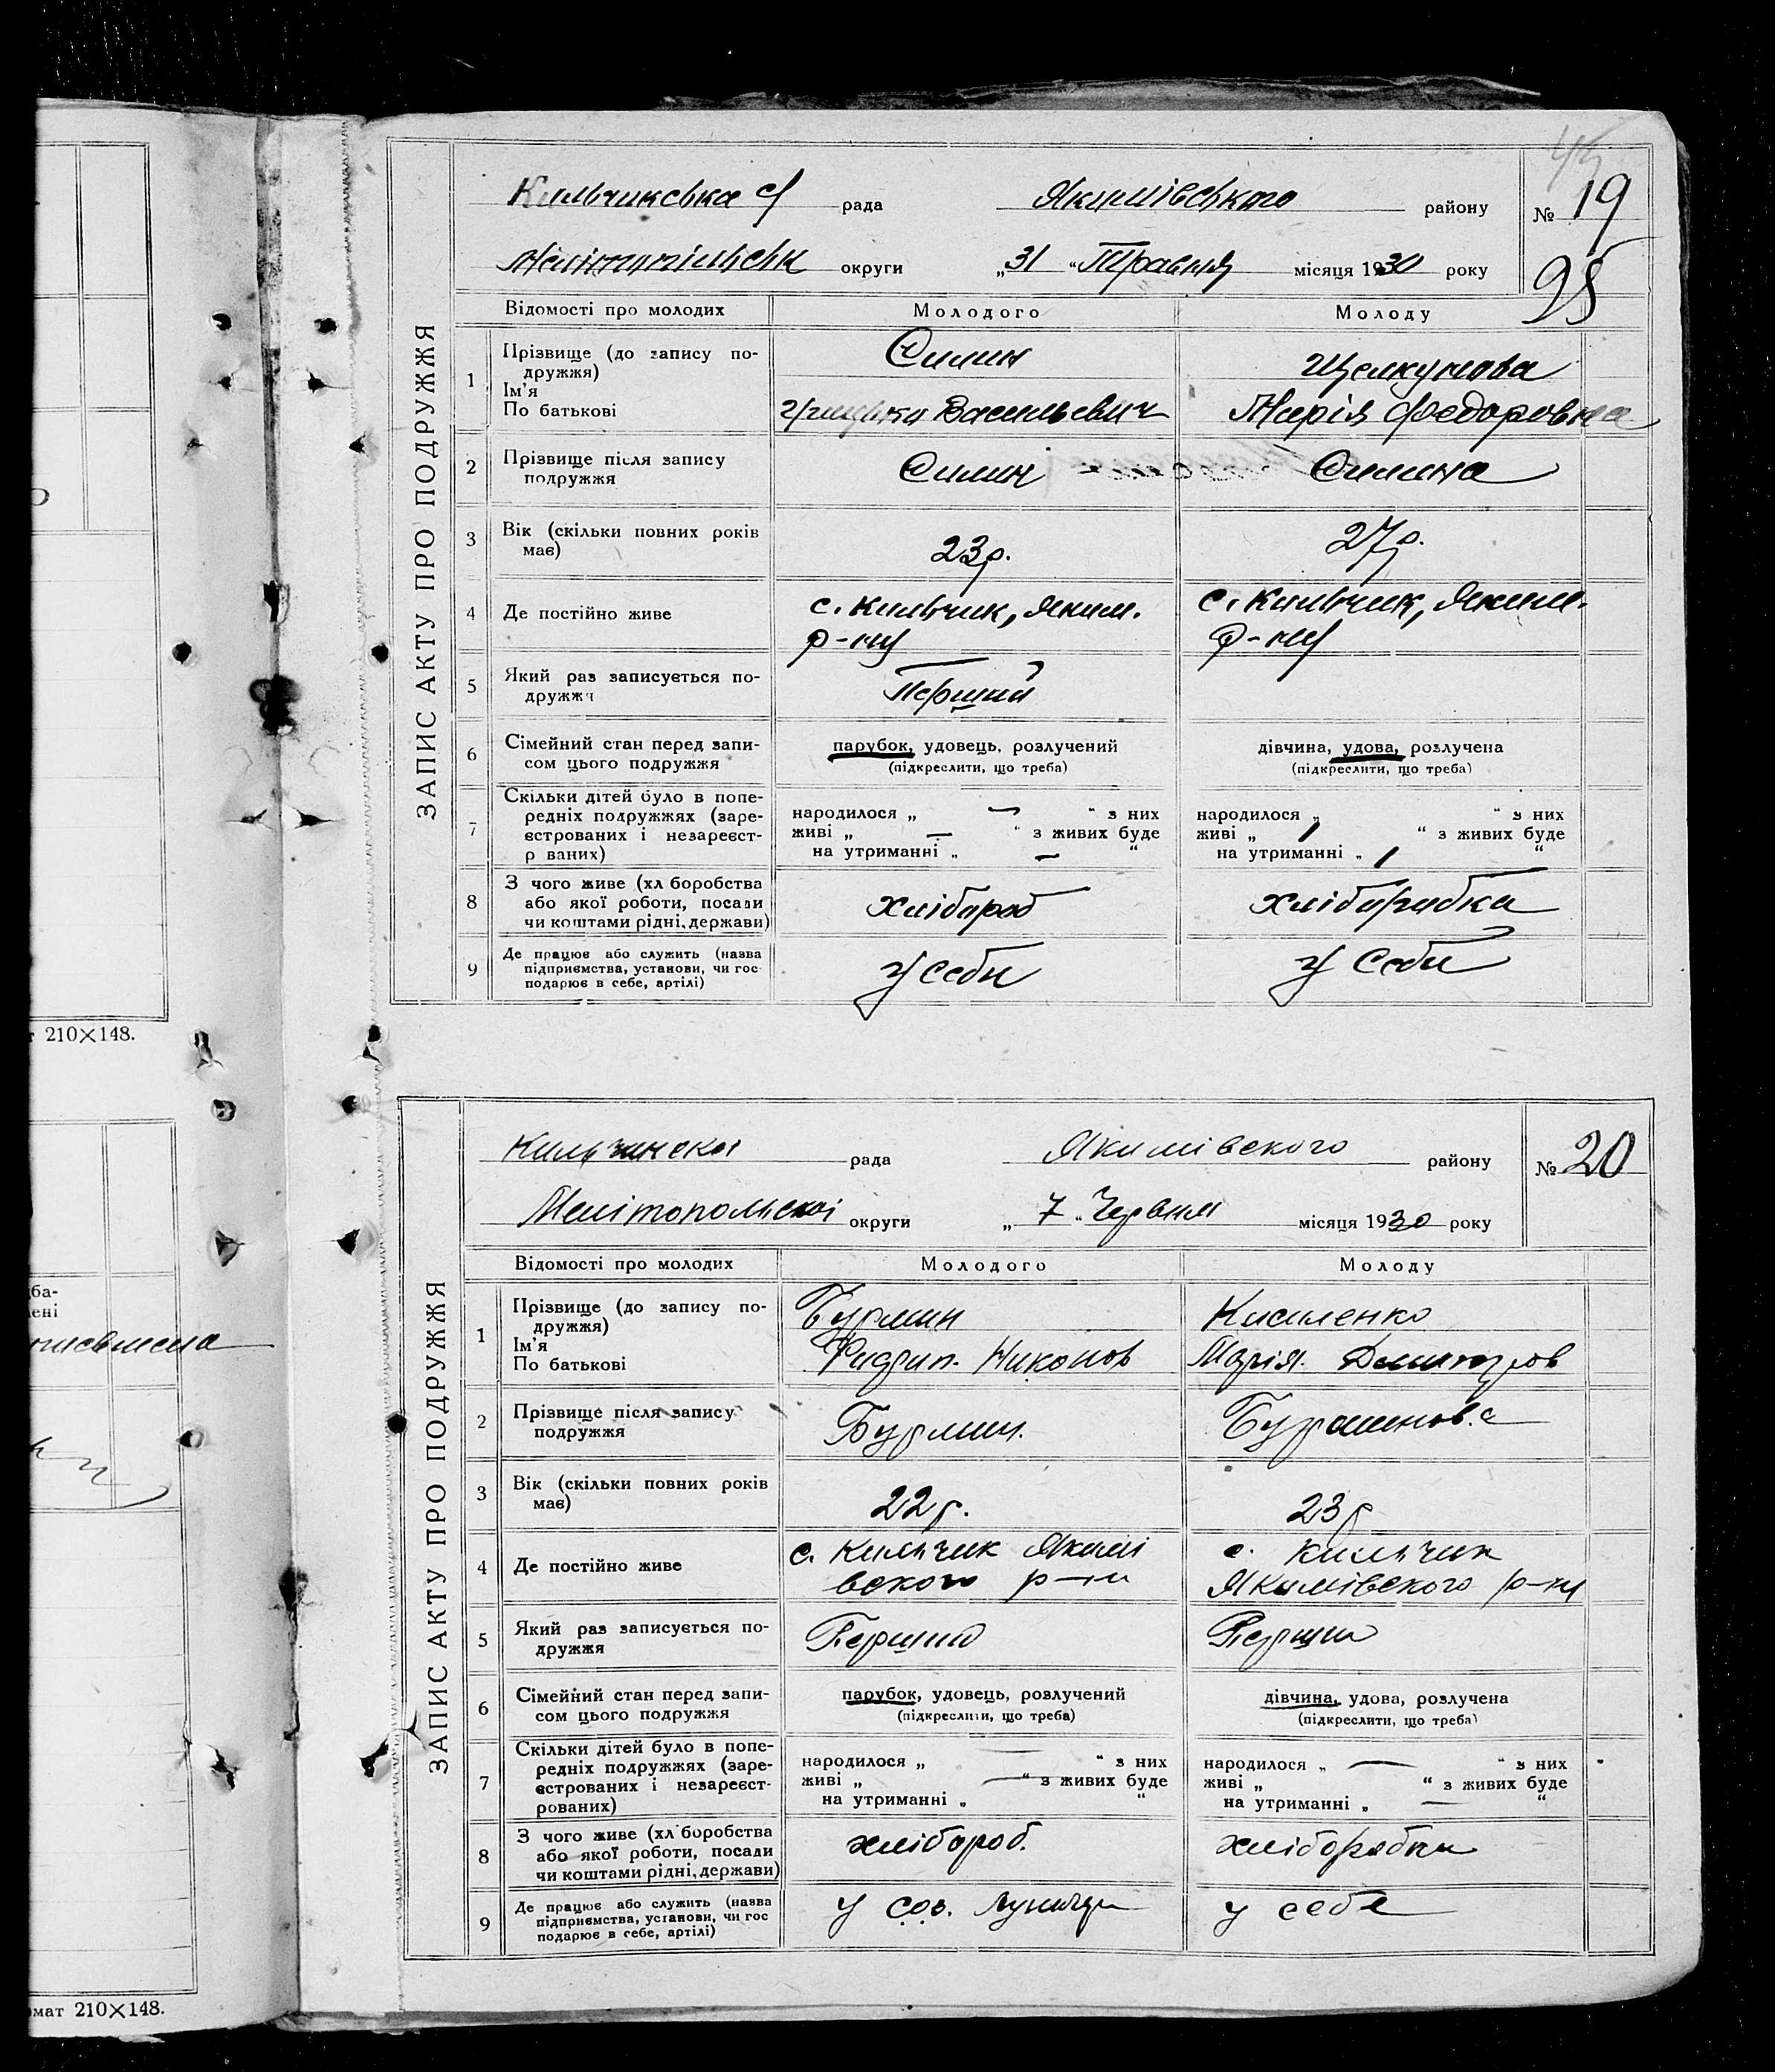 210×148.
ба-
ені
письмена
мат 210×148.
ЗАПИС АКТУ ПРО ПОДРУЖЖЯ
Кильчикська с/ рада Якимівського району № 19
округи „31“ Травня місяця 1930 року
95
Відомості про молодих Молодого Молоду
1 Прізвище (до запису по-
дружжя)
Ім'я
По батькові
Силин Щелкунова
Грицько Васильевич Марія Федоровна
2 Прізвище після запису
подружжя
Силин Силина
3 Вік (скільки повних років
має)
23р. 27р.
4 Де постійно живе
с. Кильчик, Яким. с. Кильчик, Яким.
р-ну р-ну
5 Який раз записується по-
дружжя
Перший
6 Сімейний стан перед запи-
сом цього подружжя
парубок, удовець, розлучений дівчина, удова, розлучена
(підкреслити, що треба) (підкреслити, що треба)
7 Скільки дітей було в попе-
редніх подружжях (заре-
єстрованих і незареєст-
р ваних)
народилося „ — “ з них народилося „ “ з них
живі „ — “ з живих буде живі „ 1 “ з живих буде
на утриманні „ — “ на утриманні „ 1 “
8 З чого живе (хл боробства
або якої роботи, посади
чи коштами рідні, держави)
хлібороб хліборобка
9 Де працює або служить (назва
підприємства, установи, чи гос
подарює в себе, артілі)
у себи у себи
ЗАПИС АКТУ ПРО ПОДРУЖЖЯ
рада Якимівского району № 20
Мелітопольскоі округи „ 7 “ Червня місяця 1930 року
Відомості про молодих Молодого Молоду
1 Прізвище (до запису по-
дружжя)
Ім'я
По батькові
Бурмин Кисиленко
Никонов Марія. Дмитров
2 Прізвище після запису
подружжя
Бурмин.
3 Вік (скільки повних років
має)
22р. 23р
4 Де постійно живе
с. Кильчик Якимі с. Кильчик
вского р-ни Якимівского р-ни
5 Який раз записується по-
дружжя
Перший Перши
6 Сімейний стан перед запи-
сом цього подружжя
парубок, удовець, розлучений дівчина, удова, розлучена
(підкреслити, що треба) (підкреслити, що треба)
7 Скільки дітей було в попе-
редніх подружжях (заре-
єстрованих і незареєст-
рованих)
народилося „ — “ з них народилося „ — “ з них
живі „ — “ з живих буде живі „ “ з живих буде
на утриманні „ “ на утриманні „ — “
8 З чого живе (хл боробства
або якої роботи, посади
чи коштами рідні, держави)
хлібороб. хліборобка
9 Де працює або служить (назва
підприємства, установи, чи гос
подарює в себе, артілі)
у соз. у себе